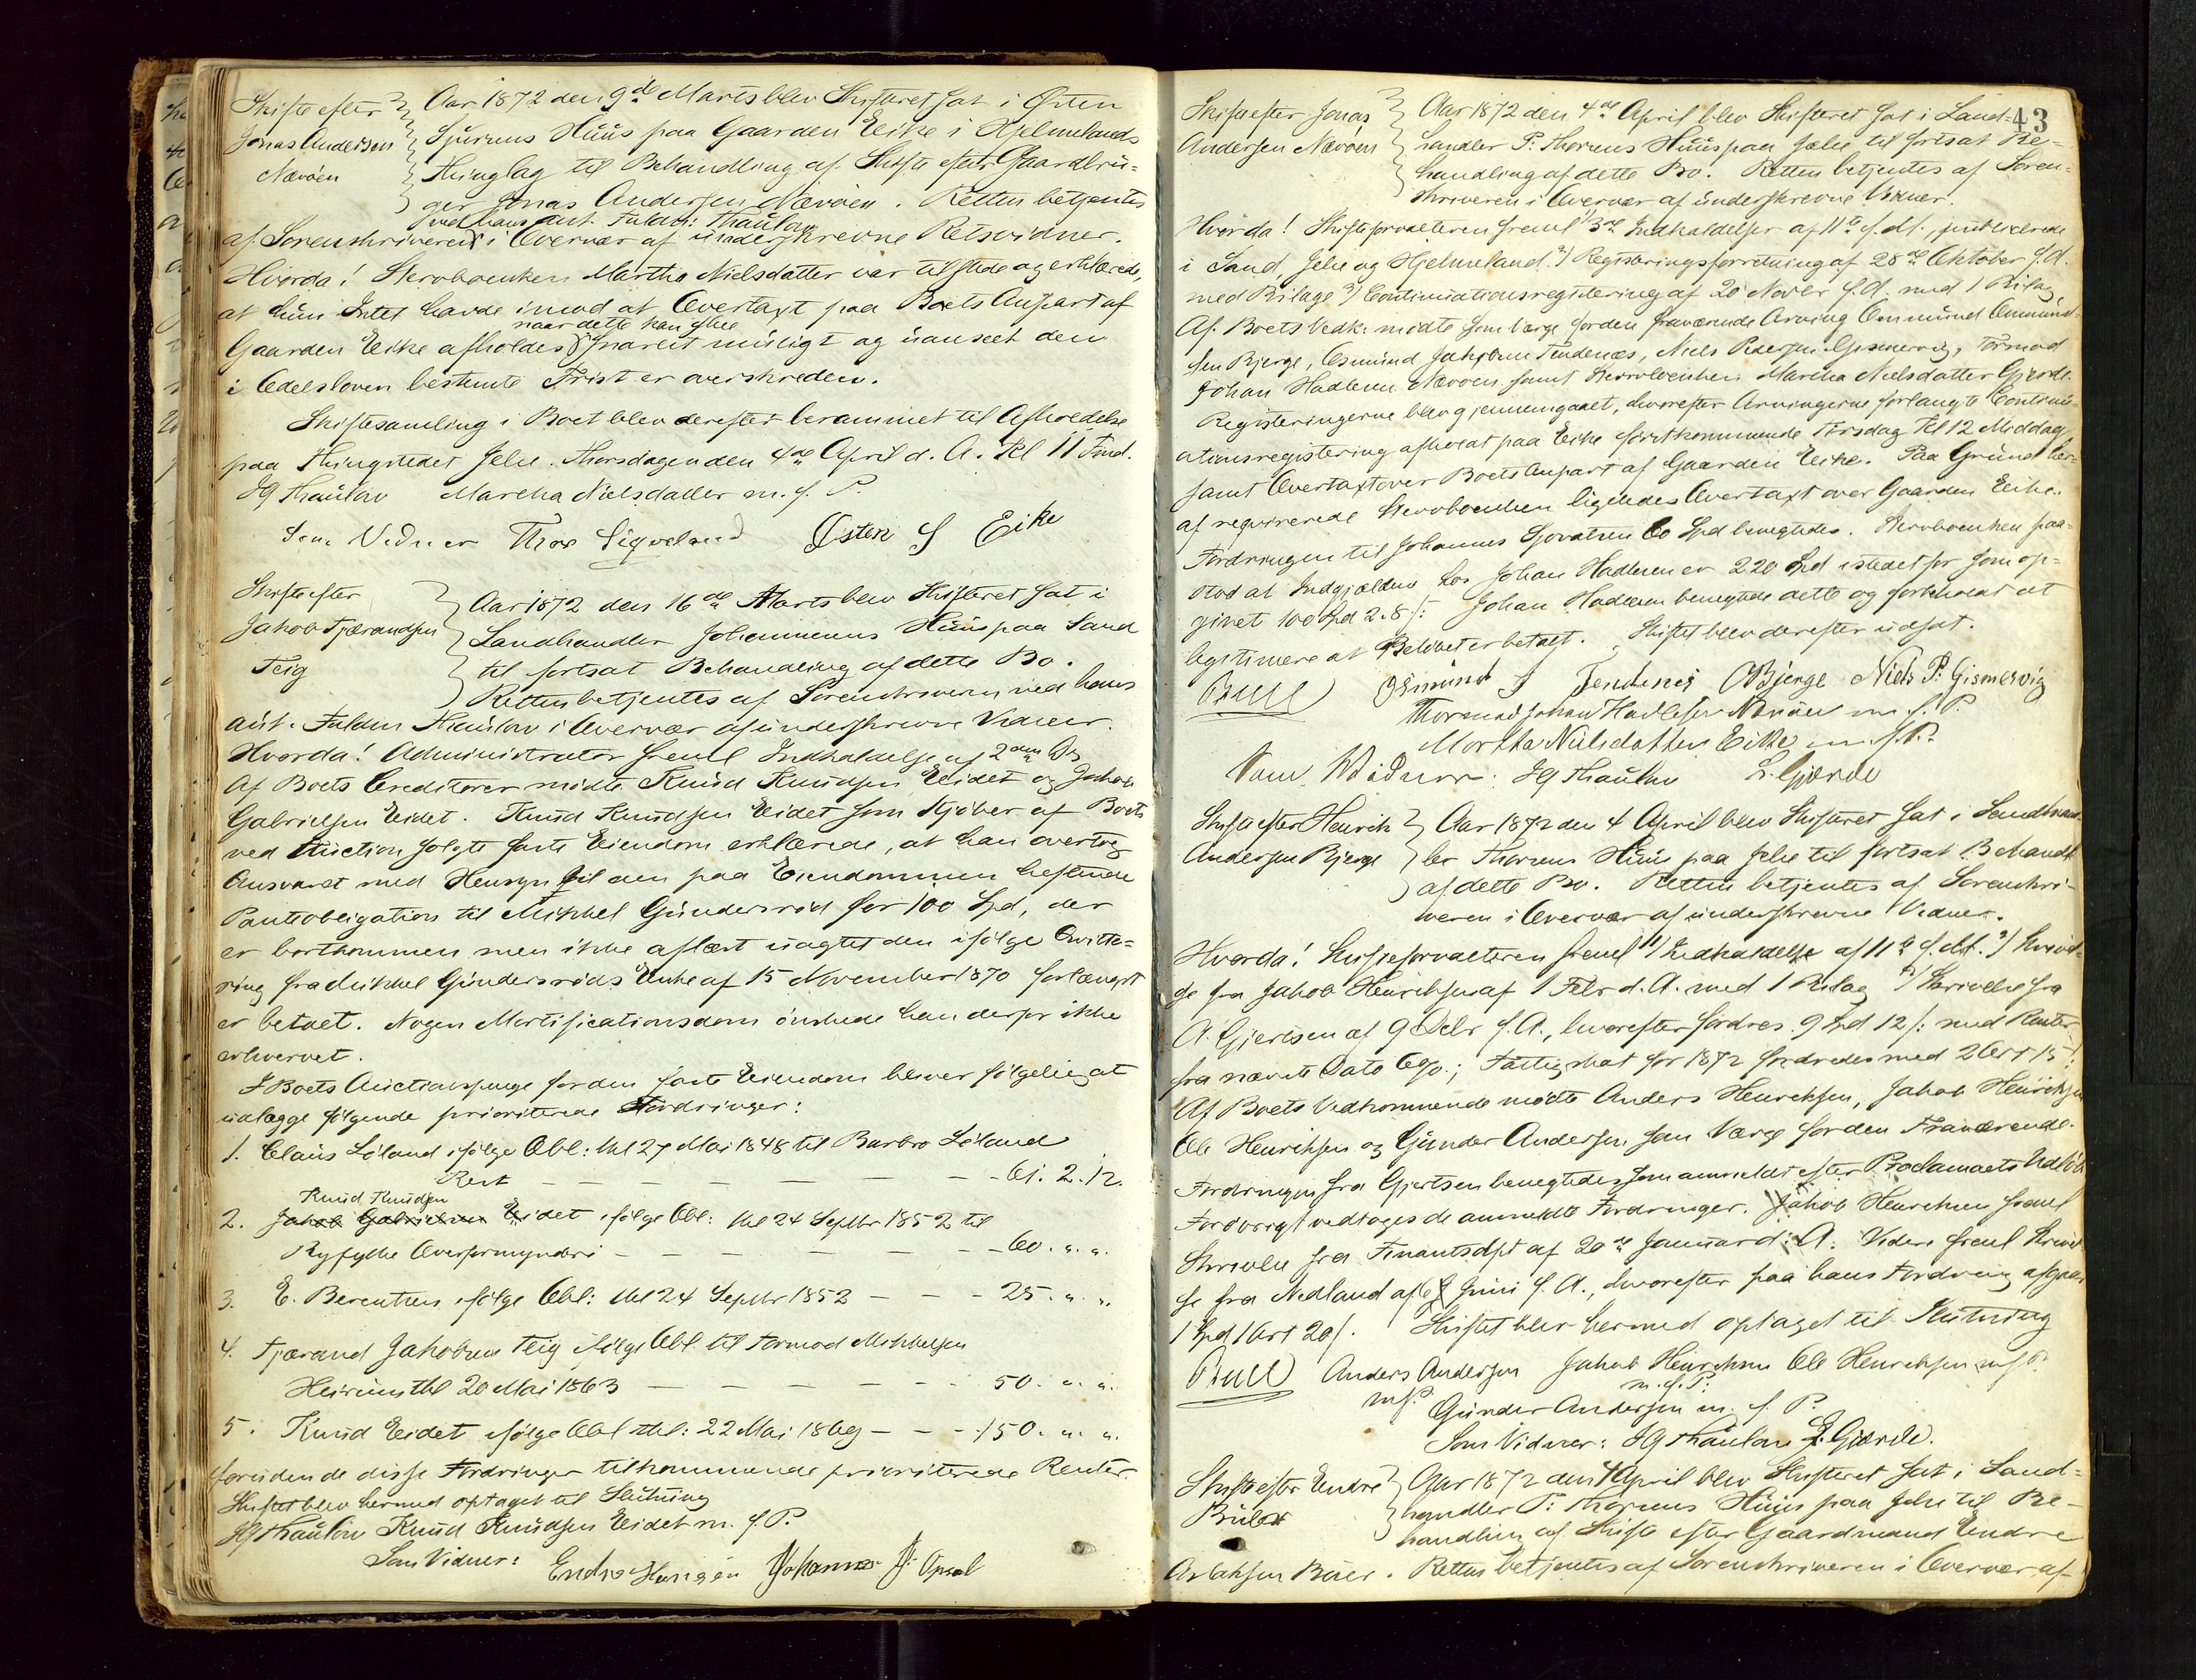 Skifte efter
Jonas Andersen
Nævøen
Aar 1872 den 9de Marts blev Skifteret sat i Østen
Sjursens Huus paa Gaarden Eike i Hjelmelands
Thinglag til Behandling af Skifte efter Gaardbru-
ger Jonas Andersen Nævøen. Retten betjentes
ved hans aut. Fuldm: Thaulow
af Sorenskriveren i Overvær af underskrevne Retsvidner.
Hvorda! Stervboenken Martha Nielsdatter var tilstede og erklærede,
at hun Intet havde imod at Overtaxt paa Boets Anpart af
naar dette kan skee
Gaarden Eike afholdes snarest muligt og uanseet den
i Odelsloven bestemte Frist er overskreden.
Skiftesamling i Boet blev derefter berammet til Afholdelse
paa Thingstedet Jelse Thorsdagen den 4de April d. A. Kl 11 Fmd.
JG Thaulow Martha Nielsdatter m. f. P.
Som Vidner Thor Sigvelsnd Østen S Eike
Skifte efter
Jakob Tjærandsen
Teig
Aar 1872 den 16de Marts blev Skifteret sat i
Landhandler Johannesens Huus paa Sand
til fortsat Behandling af dette Bo.
Retten betjentes af Sorenskriveren ved hans
aut. Fuldm Thaulow i Overvær af underskrevne Vidner.
Hvorda! Administrator freml Indkaldelse af 2den Ds
Af Boets Creditorer mødte Knud Knudsen Eidet og Jakob
Gabrielsen Eidet. Knud Knudsen Eidet som Kjøber af Boets
ved Auction solgte faste Eiendom erklærede, at han overtog
Ansvaret med Hensyn til den paa Eiendommen heftende
Pantobligation til Mikkel Gundersrød for 100 Spd, der
er bortkommen men ikke aflæst uagtet den ifølge Qvitte-
ring fra Mikkel Gundersrøds Enke af 15 November 1870 forlængst
er betalt. Nogen Mortificationsdom ønskede han derfor ikke
erhvervet.
I Boets Auctionspenge for den faste Eiendom bliver følgelig at
udlægge følgende prioriterede Fordringer:
1. Claus Løland ifølge Obl: thl 27 Mai 1848 til Barbro Løland
Rest — — — — — — 61. 2. 12.
Knud Knudsen
2. Jakob Gabrielsen Eidet ifølge Obl: thl 24 Septbr 1852 til
Ryfylke Overformynderi — — — — — — 60. " "
3. E. Berentsen ifølge Obl: thl 24 Septbr 1852 — — — 25. " "
4. Tjærand Jakobsen Teig ifølge Obl til Tormod Mikkelsen
Heirum thl 20 Mai 1863 — — — — — — 50. " "
5. Knud Eidet ifølge Obl thl: 22 Mai 1869 — — — 150. " "
foruden de disse Fordringer tilkommende prioriterede Renter.
Skiftet blev hermed optaget til Slutning
JG Thaulow Knud Knudsen Eidet m. f. P.
Som Vidner: Endre Johannes J: Opsal
43
Skifte efter Jonas
Andersen Nævøen
Aar 1872 den 4de April blev Skifteret sat i Land-
handler P. Thorsens Huus paa Jelse til fortsat Be-
handling af dette Bo. Retten betjentes af Soren-
skriveren i Overvær af underskrevne Vidner.
Hvorda! Skifteforvalteren freml 1) 3de Indkaldelser af 11te f. Mt., publicerede
i Sand, Jelse og Hjelmeland. 2) Registreringsforretning af 28de Oktober f. A.
med Bilage 3) Continuationsregistrering af 20 Novbr f. A. med 1 Bilag.
Af Boets Vedk: mødte som Værge for den fraværende Arving Ommund Ommund-
sen Bjerge, Osmund Jakobsen Tendenes, Niels Pedersen Gismervig, Tormod
Johan Hadlesen Nævøen samt Stervboenken Martha Nielsdatter Gjerde.
Registreringerne blev gjennemgaaet, hvorefter Arvingerne forlangte Continu-
ationsregistrering afholdt paa Eike førstkommende Tirsdag Kl 12 Middag
samt Overtaxt over Boets Anpart af Gaarden Eike. Paa Grund her-
af requirerede Stervboenken ligeledes Overtaxt over Gaarden Eike.
Fordringen til Johannes Sjovatsen 60 Spd benegtedes. Stervboenken paa-
stod at Indgjælden hos Johan Hadlesen er 220 Spd istedet for som op-
givet 100 Spd 2. 8 /: Johan Hadlesen benegtede dette og forbeholdt at
legitimere at Beløbet er betalt. Skiftet blev derefter udsat.
Osmund J Tendenes OBjerge Niels P. Gismervig
Thormod Johan Hadlesen Nævøen m. f. P.
Martha Nielsdatter Eike m. f. P.
Som Vidner: JG Thaulow L. Gjærde
Skifte efter Henrik
Andersen Bjerge
Aar 1872 den 4 April blev Skifteret sat i Landhand-
ler Thorsens Huus paa Jelse til fortsat Behandl.
af dette Bo. Retten betjentes af Sorenskri-
veren i Overvær af underskrevne Vidner.
Hvorda! Skifteforvalteren freml 1) Indkaldelse af 11te f. Mt. 2) Skrivel-
se fra Jakob Henriksen af 1 Febr d. A. med 1 Bilag 3) Skrivelse fra
A. Gjertsen af 9 Debr f. A., hvorefter fordres 9 Spd 12 /: med Renter
fra nævnte Dato Ogs.; Fattigskat for 1872 fordredes med 2 Ort 15 /:
Af Boets Vedkommende mødte Anders Henriksen, Jakob Henriksen
Ole Henriksen og Gunder Andersen som Værge for den Fraværende.
Fordringen fra Gjertsen benegtedes som anmeldt efter Proclamaets Udløb
Forøvrigt vedtoges de anmeldte Fordringer. Jakob Henriksen freml
Skrivelse fra Finantsdpt af 20de Januar d: A: Videre freml Skrivel-
se fra Nedland af 6 Juni f. A., hvorefter paa hans Fordring afgaar
1 Spd 1 Ort 20 /. Skiftet blev hermed optaget til Slutning
Anders Andersen Jakob Henriksen Ole Henriksen m f P.
m f P. m. f. P:
Gunder Andersen m. f. P.
Som Vidner: JG Thaulow L. Gjærde.
Skifte efter Endre
Aar 1872 den 4 April blev Skifteret sat i Land-
handler P: Thorsens Huus paa Jelse til Be-
handling af Skifte efter Gaardmand Endre
Retten betjentes af Sorenskriveren i Overvær af